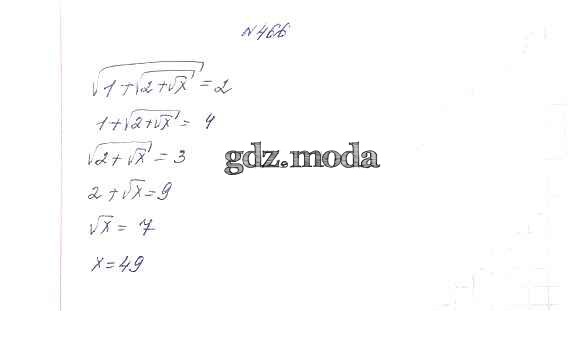 №466
√(1+√(2+√x)) = 2
1+√(2+√x) = 4
√(2+√x) = 3
gdz.moda
2+√x = 9
√x = 7
x = 49